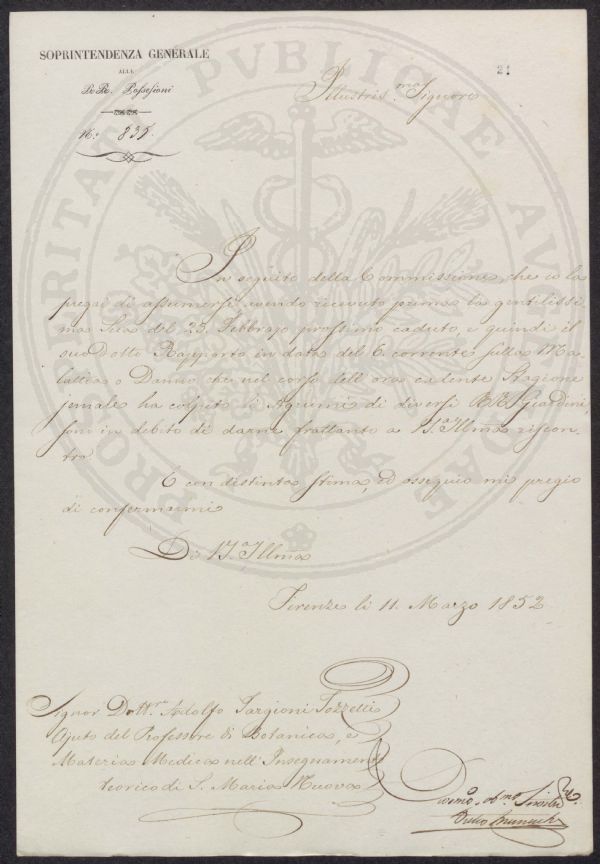 SOPRINTENDENZA GENERALE
ALLE
RR. Possessioni
N.º 835.
21
Illustris.mo Signore
In seguito della Commissione, che io la
pregai di assumersi avendo ricevuto prima la gentilissi
ma Sua del 25 Febbrajo prossimo caduto, e quindi il
suo Dotto Rapporto in data del 6 corrente sulla Ma
lattia o Danno che nel corso dell'ora cadente Stagione
jemale ha colpito i Agrumi di diversi RR. Giardini,
sono in debito di darne frattanto a V.S. Illma riscon
tro
E con distinta stima, ed ossequio mi pregio
di confermarmi
Di V.S. Illma
Firenze li 11. Marzo 1852
Signor Dott.re Adolfo Targioni Tozzetti
Ajuto del Professore di Botanica, e
Materia Medica nell'Insegnamento
teorico di S. Maria Nuova
PROSPERITATI PVBLICAE AVGENDAE